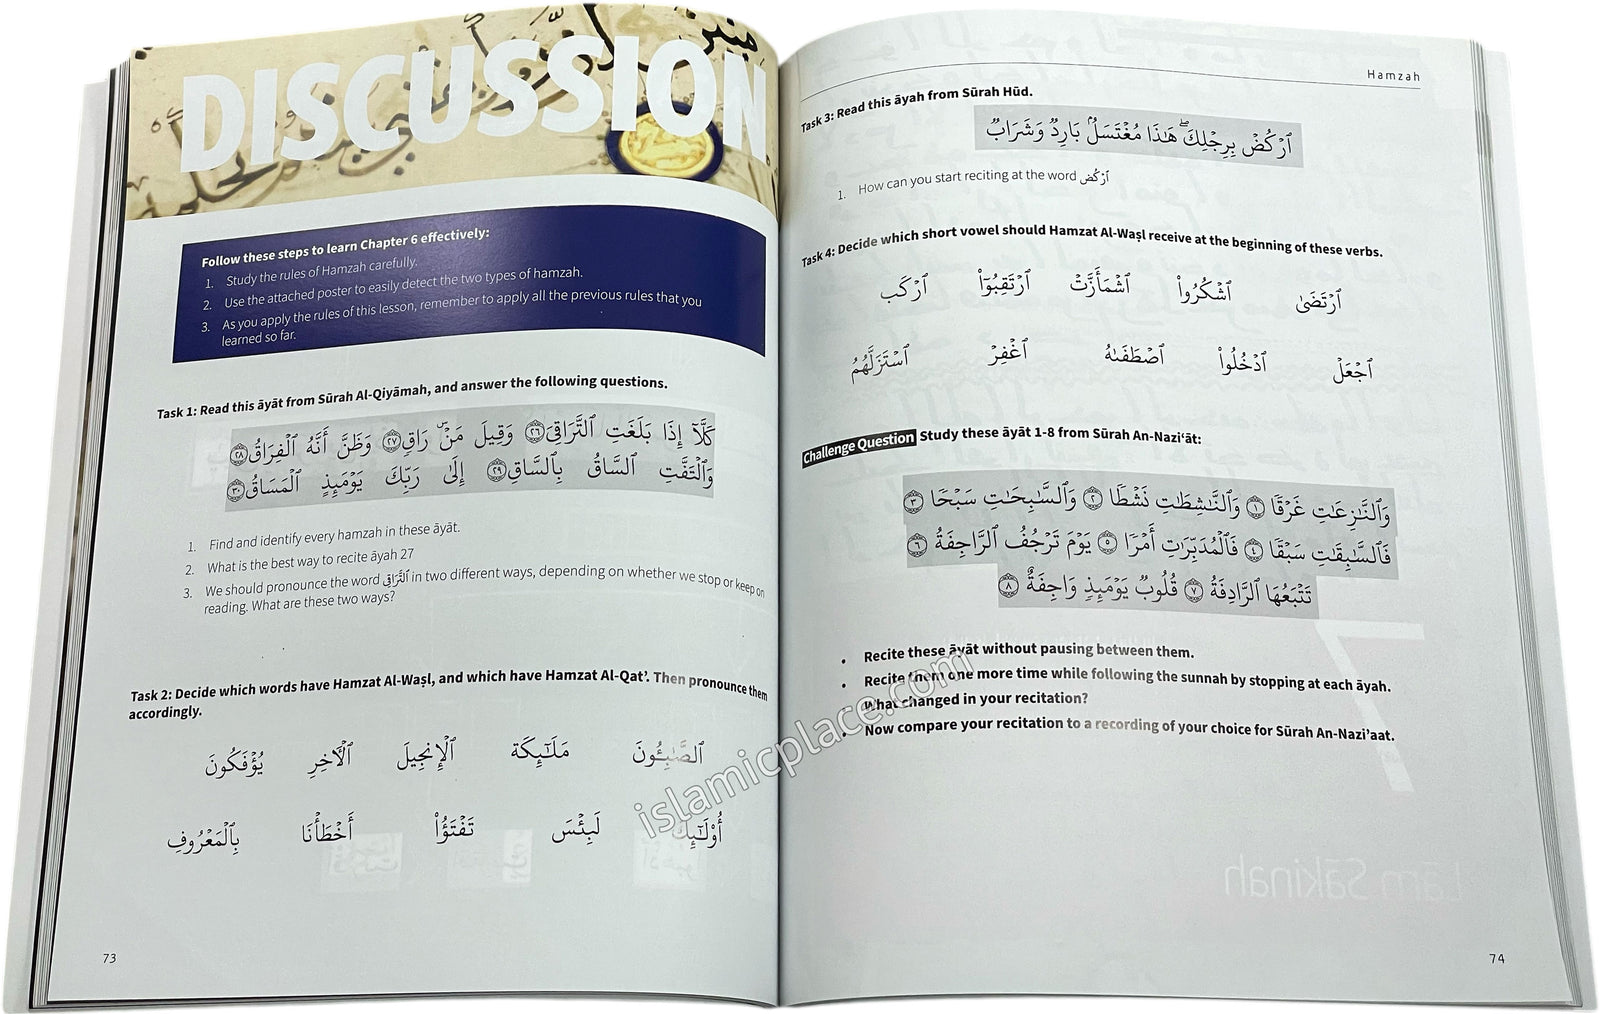 DISCUSSION
Follow these steps to learn Chapter 6 effectively:
1. Study the rules of Hamzah carefully.
2. Use the attached poster to easily detect the two types of hamzah.
3. As you apply the rules of this lesson, remember to apply all the previous rules that you
learned so far.
Task 1: Read this āyāt from Sūrah Al-Qiyāmah, and answer the following questions.
كَلَّآ إِذَا بَلَغَتِ ٱلتَّرَاقِىَ ٢٦ وَقِيلَ مَنْۜ رَاقٍ ٢٧ وَظَنَّ أَنَّهُ ٱلْفِرَاقُ ٢٨
وَٱلْتَفَّتِ ٱلسَّاقُ بِٱلسَّاقِ ٢٩ إِلَىٰ رَبِّكَ يَوْمَئِذٍ ٱلْمَسَاقُ ٣٠
1. Find and identify every hamzah in these āyāt.
2. What is the best way to recite āyah 27
3. We should pronounce the word ٱلتَّرَاقِىَ in two different ways, depending on whether we stop or keep on
reading. What are these two ways?
Task 2: Decide which words have Hamzat Al-Waṣl, and which have Hamzat Al-Qat’. Then pronounce them
accordingly.
ٱلصَّٰبِـُٔونَ مَلَٰٓئِكَة ٱلْإِنجِيلَ ٱلْأَخِرِ يُؤْفَكُونَ
أُوْلَٰٓئِكَ لَبِئْسَ تَفْتَؤُاْ أَخْطَأْنَا بِٱلْمَعْرُوفِ
73
Hamzah
Task 3: Read this āyah from Sūrah Hūd.
ٱرْكُضْ بِرِجْلِكَۖ هَٰذَا مُغْتَسَلٌۢ بَارِدٌ وَشَرَابٌ
1. How can you start reciting at the word ٱرْكُضْ
Task 4: Decide which short vowel should Hamzat Al-Waṣl receive at the beginning of these verbs.
ٱرْتَضَىٰ ٱشْكُرُواْ ٱشْمَأَزَّتْ ٱرْتَقِبُوٓاْ ٱرْكَب
ٱجْعَلْ ٱدْخُلُواْ ٱصْطَفَىٰهُ ٱغْفِرْ ٱسْتَزَلَّهُمُ
Challenge Question Study these āyāt 1-8 from Sūrah An-Nazi‘āt:
وَٱلنَّٰزِعَٰتِ غَرْقًا ١ وَٱلنَّٰشِطَٰتِ نَشْطًا ٢ وَٱلسَّٰبِحَٰتِ سَبْحًا ٣
فَٱلسَّٰبِقَٰتِ سَبْقًا ٤ فَٱلْمُدَبِّرَٰتِ أَمْرًا ٥ يَوْمَ تَرْجُفُ ٱلرَّاجِفَةُ ٦
تَتْبَعُهَا ٱلرَّادِفَةُ ٧ قُلُوبٌ يَوْمَئِذٍ وَاجِفَةٌ ٨
• Recite these āyāt without pausing between them.
• Recite them one more time while following the sunnah by stopping at each āyah.
• What changed in your recitation?
• Now compare your recitation to a recording of your choice for Sūrah An-Nazi’aat.
74
islamicplace.com